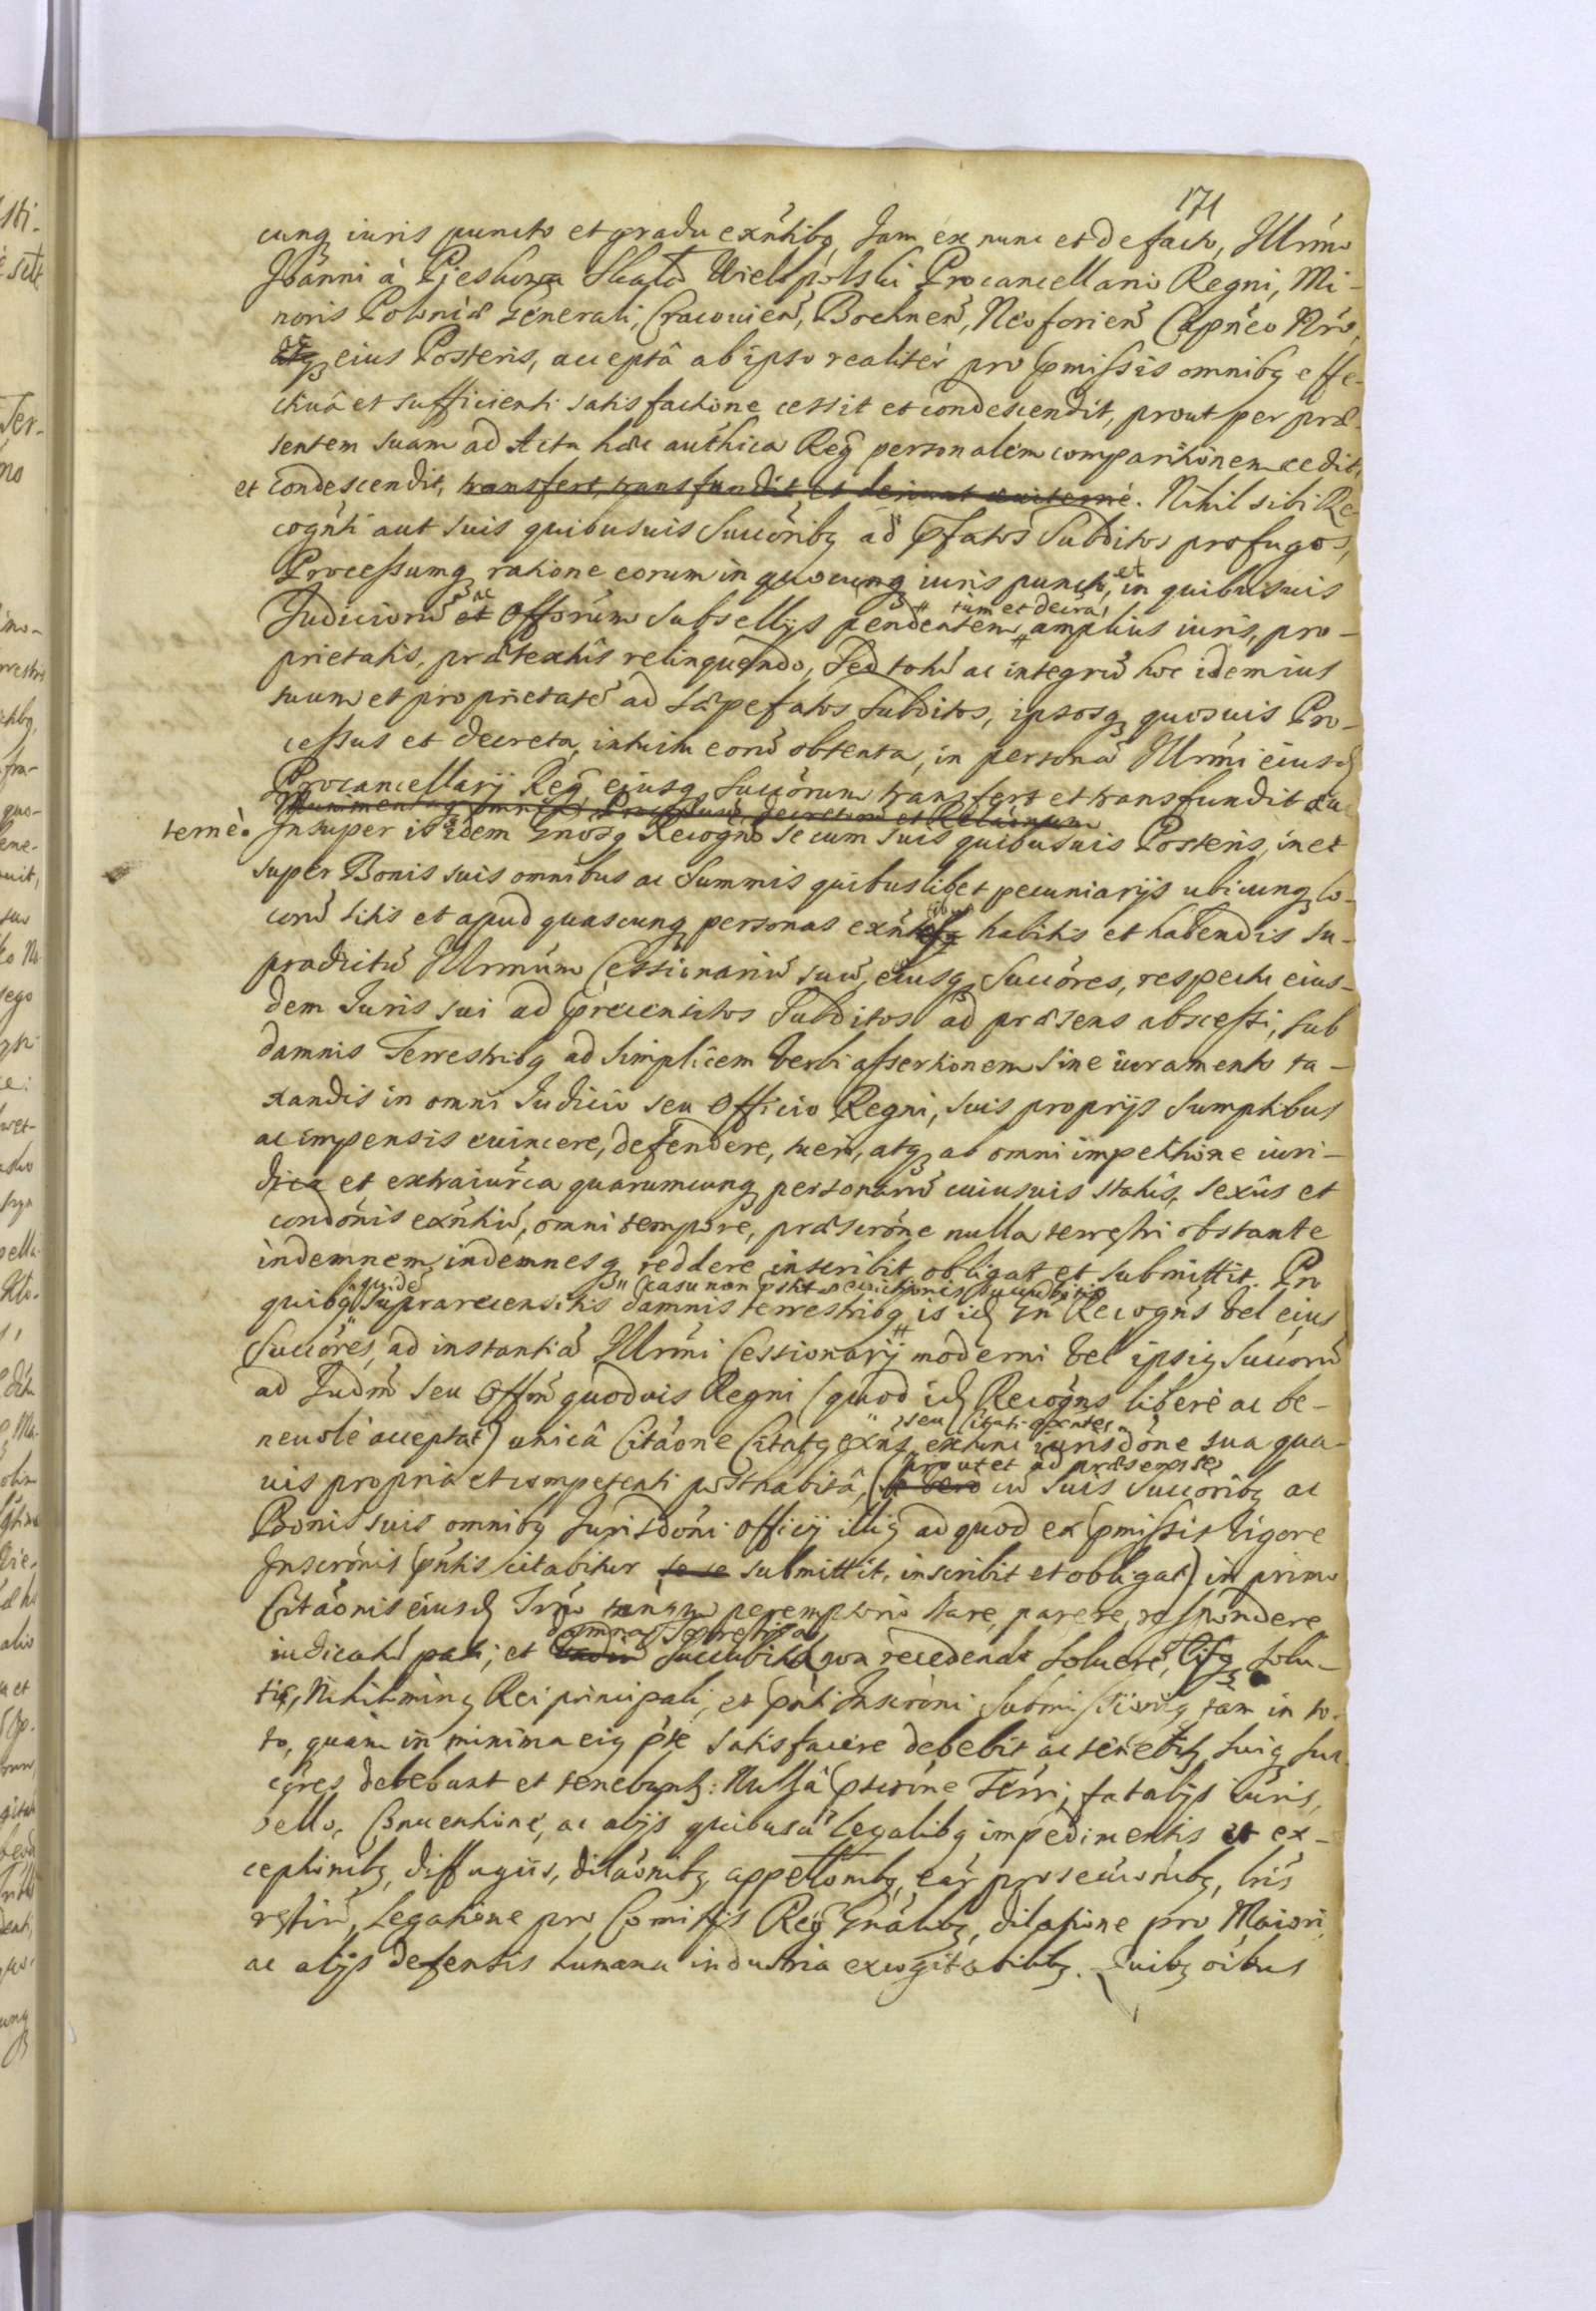 171
cunq iuris puncto et gradu exntibq Jam ex nunc et de facto, Illrmo
Joanni à Pieskowa Skała Wielopolski Procancellario Regni, Mi-
noris Poloniæ Generali, Cracovien, Bochnen, Neoforien Capneo Nro,
ac eius Posteris, acceptâ ab ipso realiter pro pmissis omnibq effe-
ctiuâ et sufficienti satisfactione cessit et condescendit, prout per præ-
sentem suam ad Acta hæc authica Reg personalem comparitionem cedit,
et condescendit, transfert, transfundit et. Nihil sibi Re-
cognti aut suis quibusuis Succoribq ad pfatos Subditos profugos,
Processumq ratione eorum in quocunq iuris puncto, et in quibusuis
Judicioru ac Offorum subsellijs pendentem tum et decra, amplius iuris, pro-
prietatis, prætextus relinquendo, Sed totu ac integru hoc idem ius
suum et proprietate ad sæpefatos subditos, ipsosq quosuis Pro-
cessus et decreta, intuitu eoru obtenta, in persona Illrmi eiusd
Procancellarij Reg eiusq Succorum transfert et transfundit æui-
Munimentaq omnia decretorum et Relaonum
terne. Insuper is idem Gnosq Recogns se cum suis quibusuis Posteris, in et
super Bonis suis omnibus ac Summis quibuslibet pecuniarijs ubicunq lo-
coru sitis et apud quascunq personas exntibus habitis et habendis su-
pradictu Illrmum Cessionariu suu, eiusq Succores, respectu eius-
dem Juris sui ad precensitos Subditos ad præsens abscessi, sub
damnis Terrestribq ad simplicem verbi assertionem sine iuramento ta-
xandis in omni Judicio seu Officio Regni, suis proprijs sumptibus
ac impensis euincere, defendere, tueri, atq ab omni impetitione iuri-
dica et extraiurca quarumcunq personaru cuiusuis status, sexûs et
condonis exntiu, omni tempore, præscrone nulla terrestri obstante
indemnem, indemnesq reddere inscribit obligat et submittit. Pro
quibq quide suprarecensitis casu non euictionis damnis terrestribq is id Gn Recogns vel eius
Succores, ad instantia Illrmi Cessionarij moderni vel ipsiq Succoru
ad Judm seu Offm quoduis Regni (quod id Recogns liberè ac be-
neuolè acceptat) unicâ Citaone Citatq exns, seu Citati exntes iurisdone sua qua-
uis propria et competenti posthabitâ, (prout et ad præsens se cu suis Succoribq ac
Bonis suis omnibq Jurisdoni Officij illiq ad quod ex pmissis vigore
Inscronis pntis citabitur se se submittit, inscribit et obligat) in primo
Citaonis eiusd Trno tanqm peremptorio stare, parere, respondere
iudicatu pati, et damna Terrestria non recedendo soluere, Iisq solu-
tis, Nihilominq Rei principali, et pnti Inscroni submissioniq tam in to-
to, quàm in minima eiq pte satisfacere debebit ac tenebitur, suiq suc-
cores debebunt et tenebuntur: Nullâ pscrone Terri, fatalijs iuris,
bello, Conuentione, ac alijs quibusu legalibq impedimentis et ex-
ceptionibq, diffugiis, dilaonibq, appellonibq, ear prosecuonibq, bris
restiu, Legatione pro Comitijs Reg Gnalibq, dilatione pro Maiori,
ac alijs defensis humana industria excogitabilibq. Quibq oibus